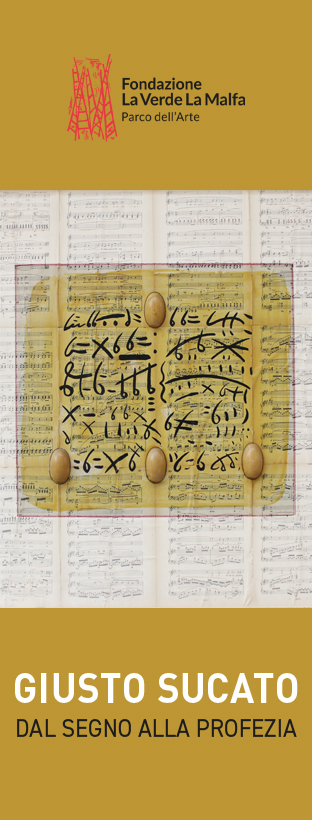 Fondazione
La Verde La Malfa
Parco dell'Arte
GIUSTO SUCATO
DAL SEGNO ALLA PROFEZIA